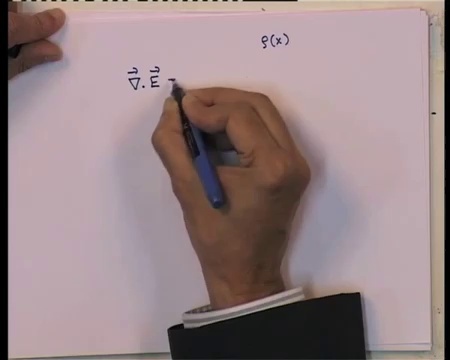 ρ(x)
∇⃗ . E⃗ -